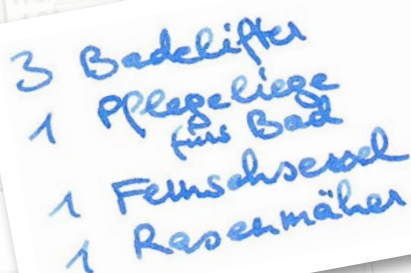 3 Badelifter
1 Pflegeliege
fürs Bad
1 Fernsehsessel
1 Rasenmäher